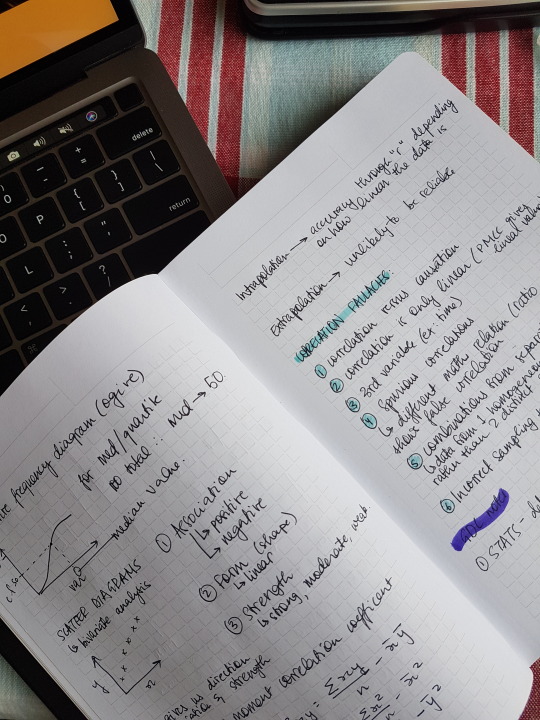 delete
return
ive frequency diagram (ogive)
for med/quartile
100 total ∴ med → 50.
median value.
c.f.
SCATTER DIAGRAMS
↳ bivariate analysis
y
x
① Association
↳ positive
↳ negative
② Form (shape)
↳ linear
③ Strength
↳ strong, moderate, weak.
gives us direction
& strength
moment correlation coefficient
Σxy / n - x̄ȳ
- x̄²
- ȳ²
Intrapolation → accuracy through "r" depending
on how linear the data is
Extrapolation → unlikely to be reliable
CORRELATION FALLACIES:
① correlation versus causation
② correlation is only linear (PMCC gives
linear value
③ 3rd variable (ex: time)
④ Spurious correlations
↳ different math relation (ratio
shows false correlation
⑤ combinations from separa
↳ data from 1 homogeneou
rather than 2 distinct
⑥ Incorrect sampling t
① STATS - de